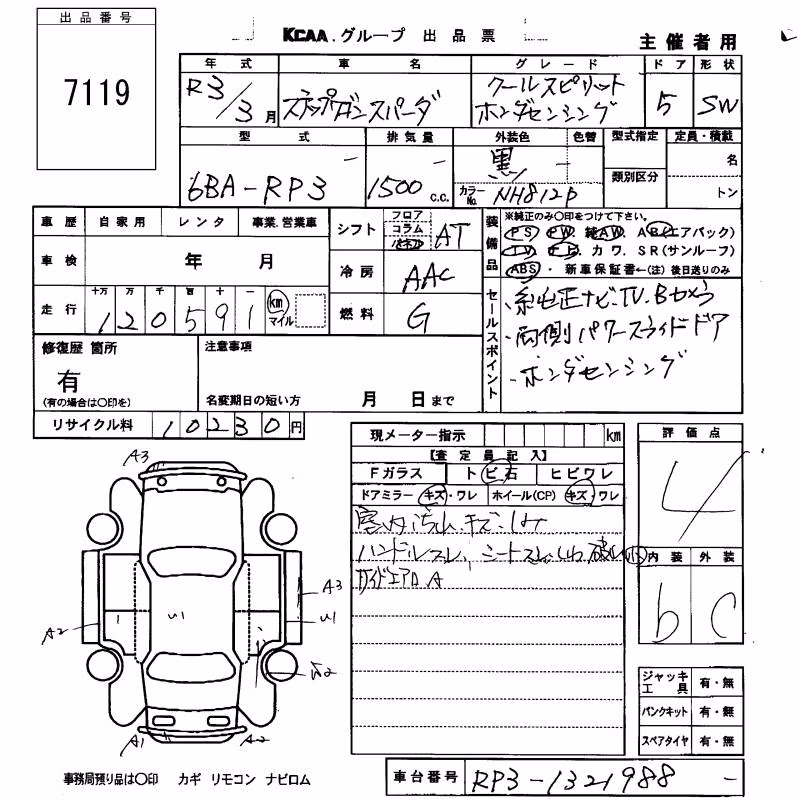 出品番号
7119
KCAA.グループ 出品票
主催者用
年式 車名 グレード ドア 形状
R3/3月 ステップワゴンスパーダ クールスピリット ホンダセンシング 5 SW
型式 排気量 外装色 色替 型式指定 定員・積載
6BA-RP3 - 1500 c.c. 黒 - 類別区分 名
カラーNo. NH812P トン
車歴 自家用 レンタ 事業.営業車
シフト フロア コラム パネル AT
装備品 ※純正のみ〇印をつけて下さい。
PS PW. 純AW. AB(エアバック)
TV. ナビ. カワ. SR(サンルーフ)
ABS・ 新車保証書←(注)後日送りのみ
車検 年 月
冷房 AAC
走行 十万 万 千 百 十 一
120591 km マイル
燃料 G
セールスポイント
・純正ナビ.TV.Bカメラ
・両側パワースライドドア
・ホンダセンシング
修復歴 箇所
有
(有の場合は〇印を)
注意事項
名変期日の短い方 月 日まで
リサイクル料 10230円
現メーター指示 km
【査定員記入】
Fガラス トビ石 ヒビワレ
ドアミラー キズ・ワレ ホイール(CP) キズ・ワレ
室内汚れ.キズ.シミ
ハンドルスレ シートスレ.シワ.破レ 小
サイドエアロ A
評価点
4
内装 外装
b C
A3
A3
U1
U1
A2
A1
A2
ジャッキ工具 有・無
パンクキット 有・無
スペアタイヤ 有・無
事務局預り品は〇印 カギ リモコン ナビロム
車台番号 RP3-1321988 -